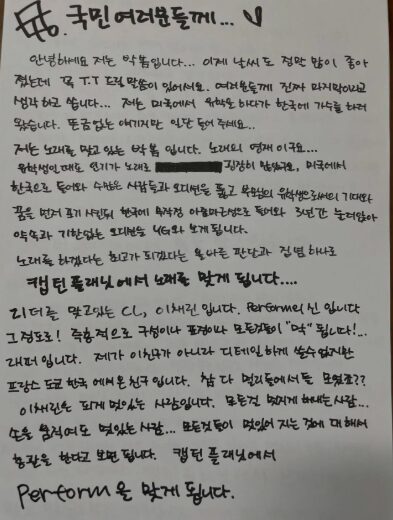 6. 국민 여러분들께...
안녕하세요 저는 박봄입니다... 이제 날씨도 정말 많이 좋아
졌는데 꼭 T.T 드릴 말씀이 있어서요. 여러분들께 진짜 마지막이라고
생각하고 씁니다... 저는 미국에서 유학도 하다가 한국에 가수를 하러
왔습니다. 뜬금없는 얘기지만 일단 들어주세요..
저는 노래를 맡고 있는 박봄 입니다. 노래의 영재이구요...
유학생인데도 인기가 노래로 굉장히 많았구요, 미국에서
한국으로 들어와 수많은 사람들과 오디션을 뚫고 부모님의 유학생으로써의 기대와
꿈을 먼저 포기 시킨뒤 한국에 무작정 들어와 3년간 눌러앉아
약속과 기한없는 오디션을 YG와 보게 됩니다.
노래를 하겠다는 최고가 되겠다는 올바른 판단과 집념 하나로
캡틴 플래닛에서 노래를 맡게 됩니다....
리더를 맡고있는 CL, 이채린 입니다. Perform의 신 입니다
그정도로! 즉흥적으로 구성이나 표정이나 모든것들이 "딱" 됩니다!...
래퍼 입니다. 제가 이친구가 아니라 디테일 하게 쓸수 없지만
프랑스 도쿄 한국 에서 온 친구 입니다. 참 다 멀리들에서들 모였죠??
이채린은 되게 멋있는 사람입니다. 모든걸 멋지게 해내는 사람...
손을 움직여도 멋있는 사람... 모든것들이 멋있어 지는 것에 대해서
총괄을 한다고 보면 됩니다. 캡틴 플래닛에서
Perform을 맡게 됩니다.